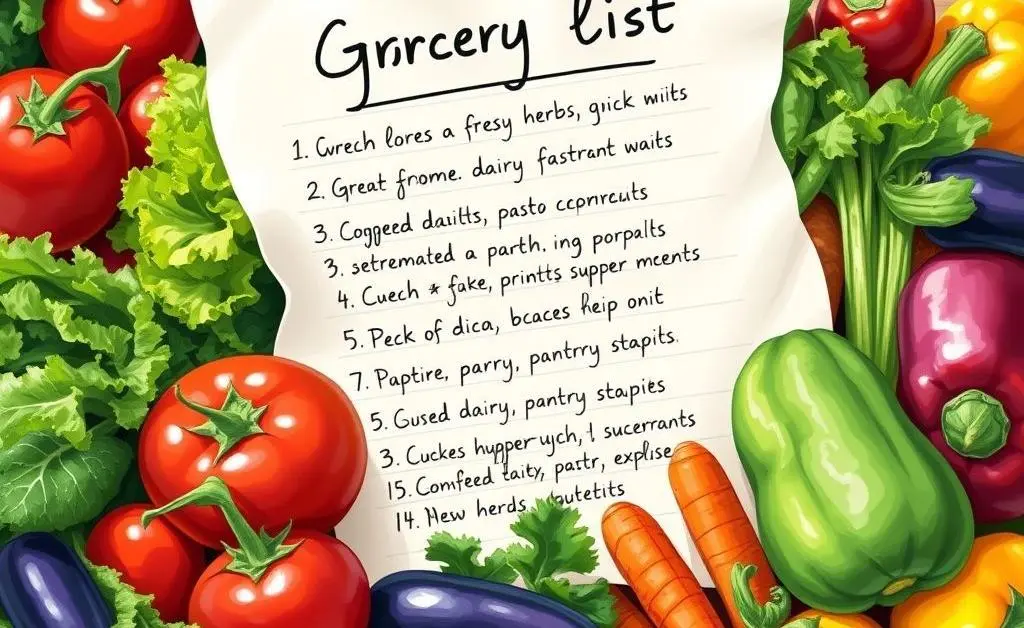 Grrcery list
1. Cvrech lores a fresy herbs, grick wiits
2. Great frrome. dairy fastrant waits
3. Cogpeed daiilts, pasto ccpnrcuts
3. setremated a parth. ing porpalts
4. Cuech * fake, printts supper mcents
5. Peck of dica, bcaces heip onit
7. Paptire, parry, pantrry stapits.
5. Gused dairy, pantry stapies
3. Cuckes hupper uych, sucerrants
15. Comfeed pastr,
14. New herds